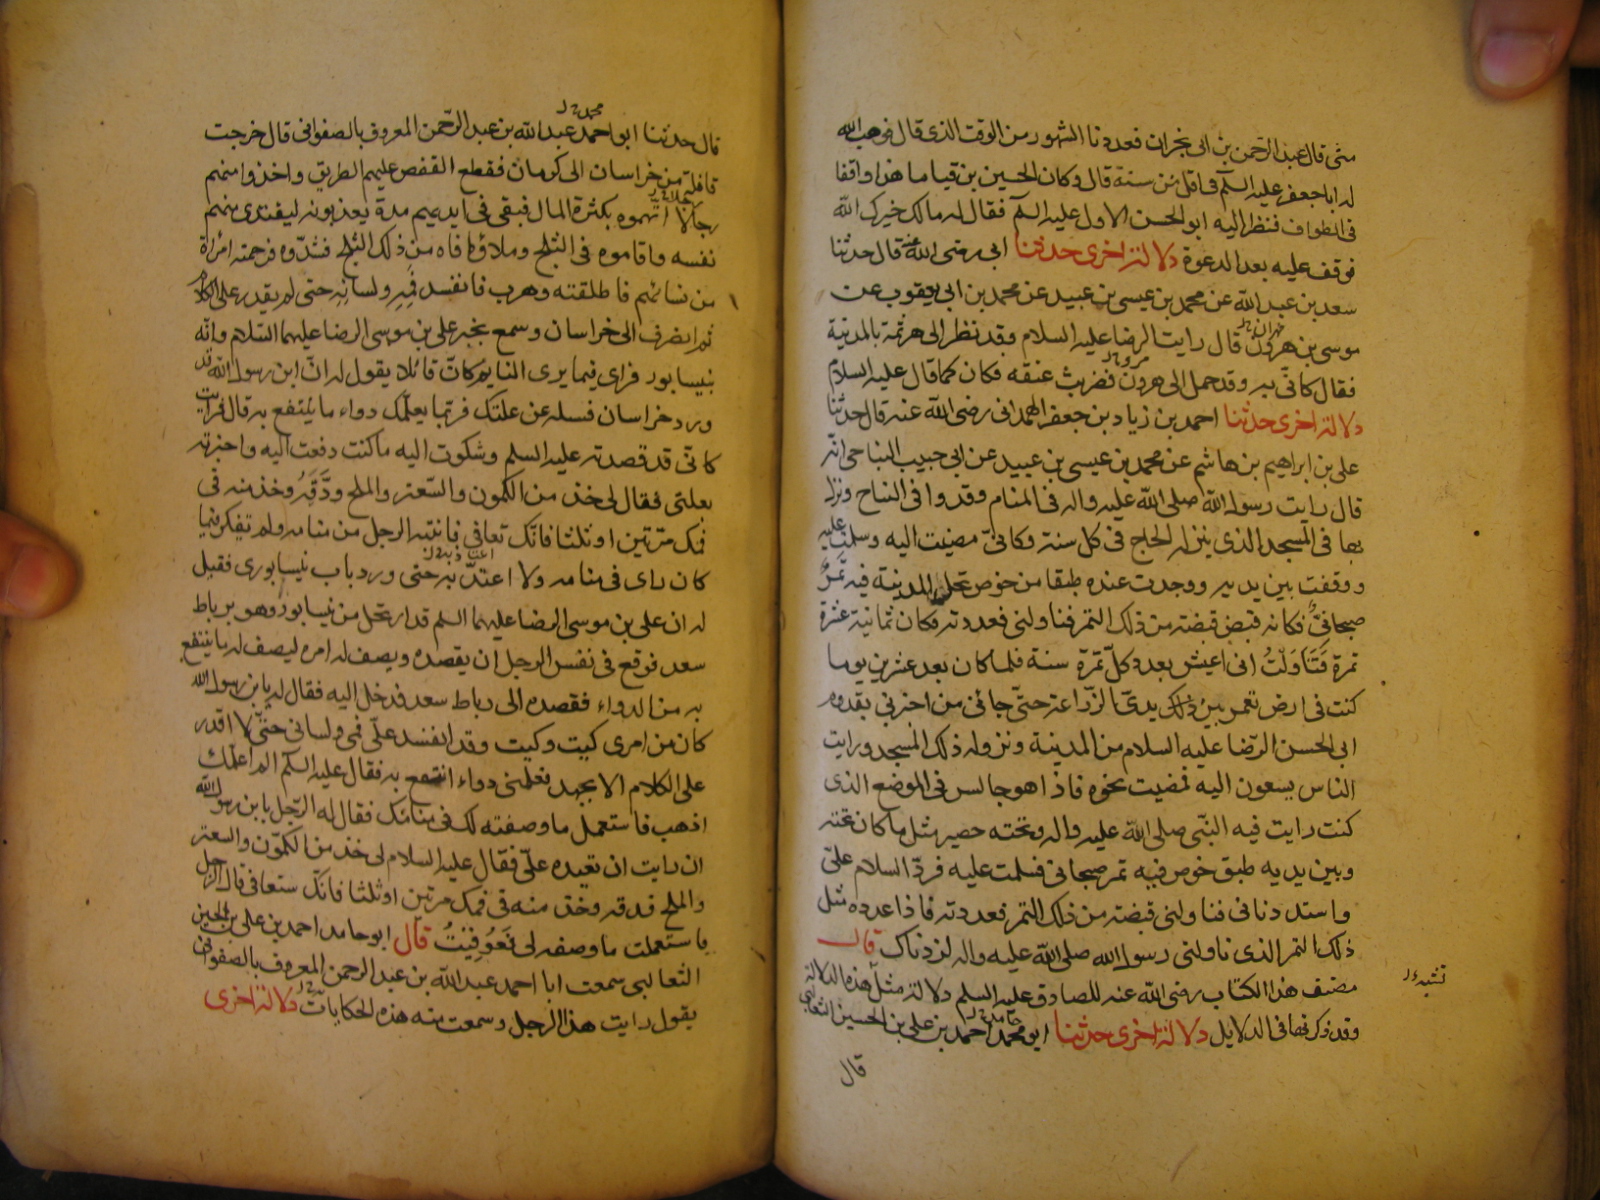 متى قال عبد الرحمن بن ابى نجران فعددنا الشهور من الوقت الذى قال فوهب الله
له ابا جعفر عليه السلم فى اقل من سنة قال وكان الحسين بن قياما هذا واقفا
فى الطواف فنظر اليه ابو الحسن الاول عليه السلم فقال له مالك حيرك الله
فوقف عليه بعد الدعوة دلالة اخرى حدثنا ابى رضى الله عنه قال حدثنا
سعد بن عبد الله عن محمد بن عيسى بن عبيد عن محمد بن ابى يعقوب عن
مهران خ ل
موسى بن هرون قال رايت الرضا عليه السلام وقد نظر الى هرثمة بالمدينة
مرو خ ل
فقال كانى به وقد حمل الى هرون فضربت عنقه فكان كما قال عليه السلام
دلالة اخرى حدثنا احمد بن زياد بن جعفر الهمدانى رضى الله عنه قال حدثنا
على بن ابراهيم بن هاشم عن محمد بن عيسى بن عبيد عن ابى حبيب النباجى انه
قال رايت رسول الله صلى الله عليه واله فى المنام وقد وافى النباج ونزل
بها فى المسجد الذى ينزله الحاج فى كل سنة وكانى مضيت اليه وسلمت عليه
ووقفت بين يديه ووجدت عنده طبقا من خوص نخل المدينة فيه تمر
صيحانى فكانه قبض قبضة من ذلك التمر فناولنى فعددته فكان ثمانية عشرة
تمرة فتاولت انى اعيش بعدد كل تمرة سنة فلما كان بعد عشرين يوما
كنت فى ارض تعمر بين يدى الزراعة حتى جائنى من اخبرنى بقدوم
ابى الحسن الرضا عليه السلام من المدينة ونزوله ذلك المسجد ورايت
الناس يسعون اليه فمضيت نحوه فاذا هو جالس فى الموضع الذى
كنت رايت فيه النبى صلى الله عليه واله وتحته حصير مثل ما كان تحته
وبين يديه طبق خوص فيه تمر صيحانى فسلمت عليه فرد السلام على
واستدنانى فناولنى قبضة من ذلك التمر فعددته فاذا عدده مثل
ذلك التمر الذى ناولنى رسول الله صلى الله عليه واله لزدناك قال
مصنف هذا الكتاب رضى الله عنه للصادق عليه السلم دلالة مثل هذه الدلالة
حامد خ ل
وقد ذكرتها فى الدلايل دلالة اخرى حدثنا ابو محمد احمد بن على بن الحسين الثعالبى
قال
محمد خ ل
قال حدثنا ابو احمد عبد الله بن عبد الرحمن المعروف بالصفوانى قال خرجت
قافلة من خراسان الى كرمان فقطع القفص عليهم الطريق واخذوا منهم
رجالا اتهموه بكثرة المال فبقى فى ايديهم مدة يعذبونه ليفتدى منهم
نفسه واقاموه فى الثلج وملاؤا فاه من ذلك الثلج فشدوه فرحمته امراة
من نسائهم فاطلقته وهرب فانفسد فمه ولسانه حتى لم يقدر على الكلام
ثم انصرف الى خراسان وسمع بخبر على بن موسى الرضا عليهما السلام وانه
بنيسابور فراى فيما يرى النايم كان قائلا يقول له ان ابن رسول الله قد
ورد خراسان فسله عن علتك فربما يعلمك دواء ما ينتفع به قال فرايت
كانى قد قصدته عليه السلم وشكوت اليه ما كنت دفعت اليه واخبرته
بعلتى فقال لى خذ من الكمون والسعتر والملح ودقه وخذ منه فى
فمك مرتين او ثلثا فانك تعافى فانتبه الرجل من منامه ولم يفكر فيما
كان راى فى منامه ولا اعتد به حتى ورد باب نيسابورى فقيل
له ان على بن موسى الرضا عليهما السلم قد ارتحل من نيسابور وهو برباط
سعد فوقع فى نفس الرجل ان يقصده ويصف له امره ليصف له ما ينتفع
به من الدواء فقصده الى رباط سعد فدخل اليه فقال له يا بن رسول الله
كان من امرى كيت وكيت وقد انفسد على فمى ولسانى حتى لا اقدر
على الكلام الا بجهد فعلمنى دواء انتفع به فقال عليه السلم الم اعلمك
اذهب فاستعمل ما وصفته لك فى منامك فقال له الرجل يا بن رسول الله
ان رايت ان تعيده على فقال عليه السلام لى خذ من الكمون والسعتر
والملح فدقه وخذ منه فى فمك مرتين او ثلثا فانك ستعافى قال الرجل
فاستعملت ما وصفه لى فعوفيت قال ابو حامد احمد بن على بن الحسين
الثعالبى سمعت ابا احمد عبد الله بن عبد الرحمن المعروف بالصفوانى
يقول رايت هذا الرجل وسمعت منه هذه الحكايات دلالة اخرى